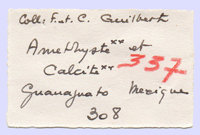 Coll: F. et C. Guilbert
Amethyste** et
Calcite** 337
Guanaguato Mexique
308